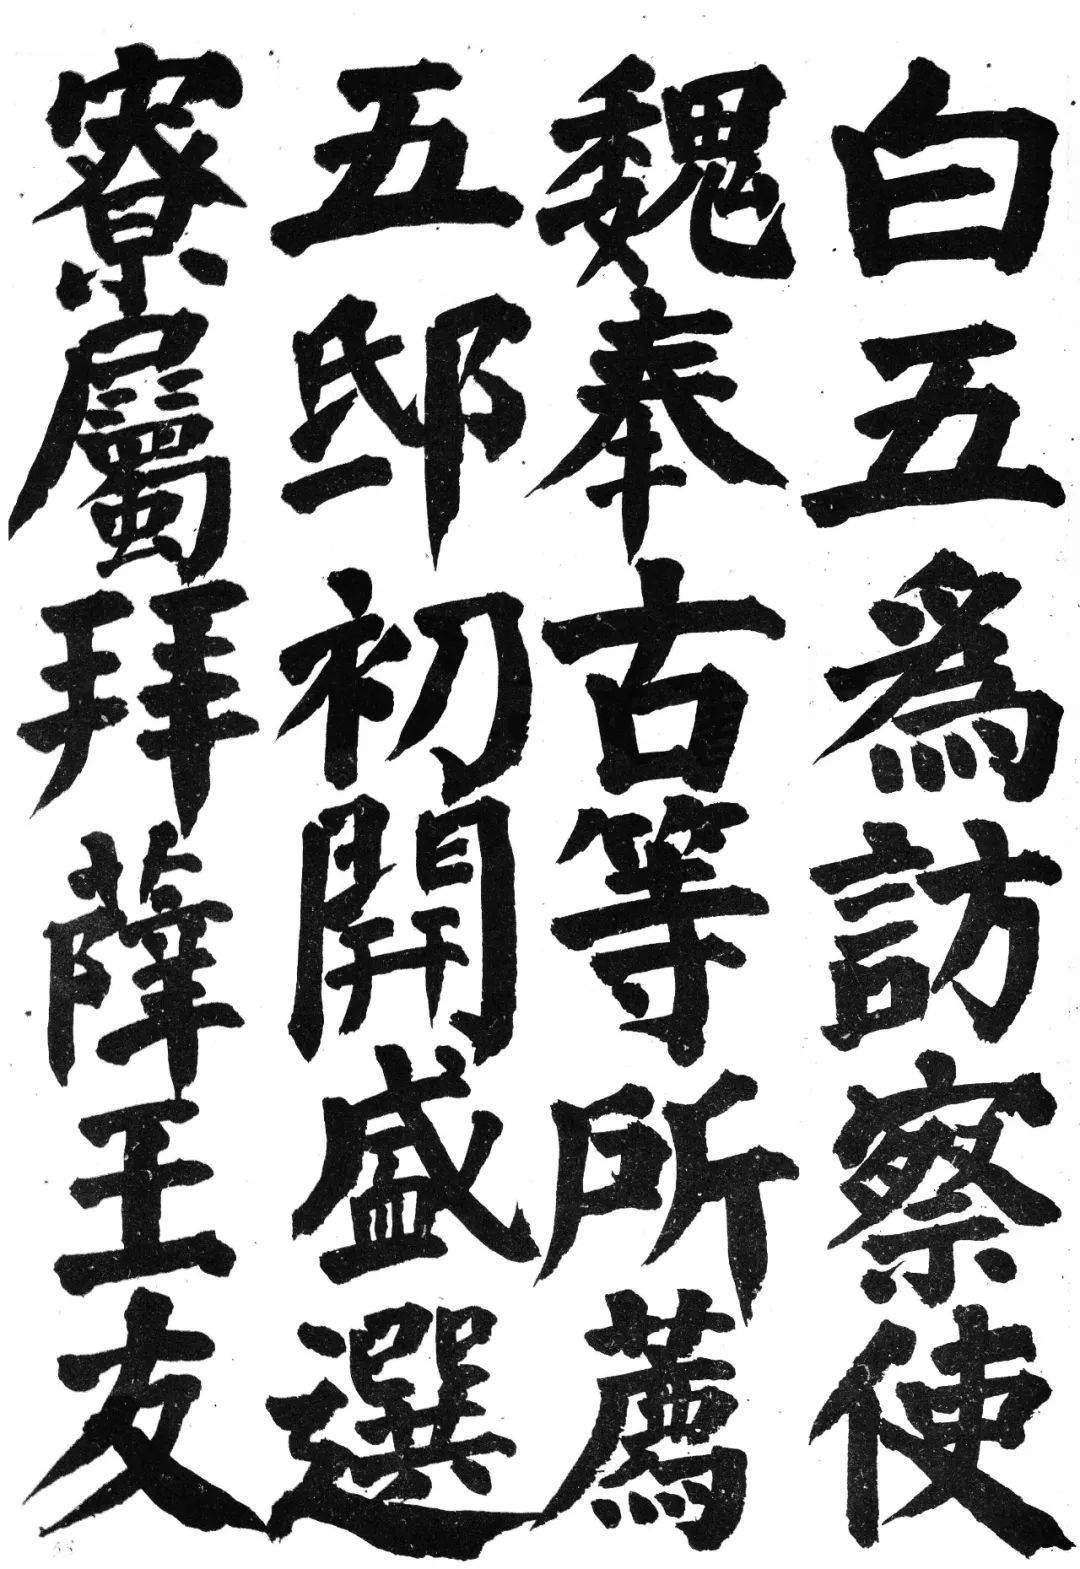 白五為訪察使
魏奉古等所薦
五邸初開盛選
寮屬拜薛王友